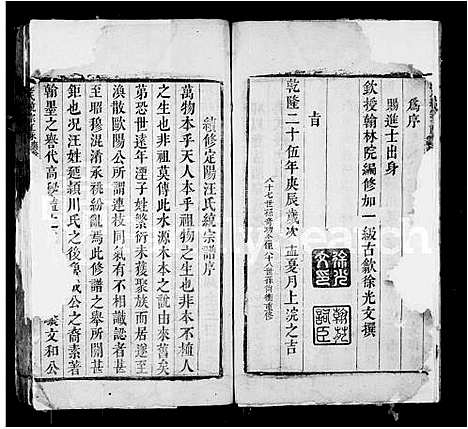 為序
賜進士出身
欽授翰林院編修加一級古歙徐光文撰
旹
乾隆二十伍年庚辰歲次孟夏月上浣之吉
徐光文印
翰苑詞臣
續修定陽汪氏統宗譜序
萬物本乎天人本乎祖物之生也非本不植人
之生也非祖莫傳此木本水源之說由來舊矣
第恐世遠年湮子姓繁衍未獲聚族而居遂至
渙散歐陽公所謂連枝同氣有不相識認者甚
至昭穆混淆承祧紛亂焉此修譜之舉所關甚
鉅也况汪姓延頴川氏之後 公之裔素著
翰墨之譽代高 文和公